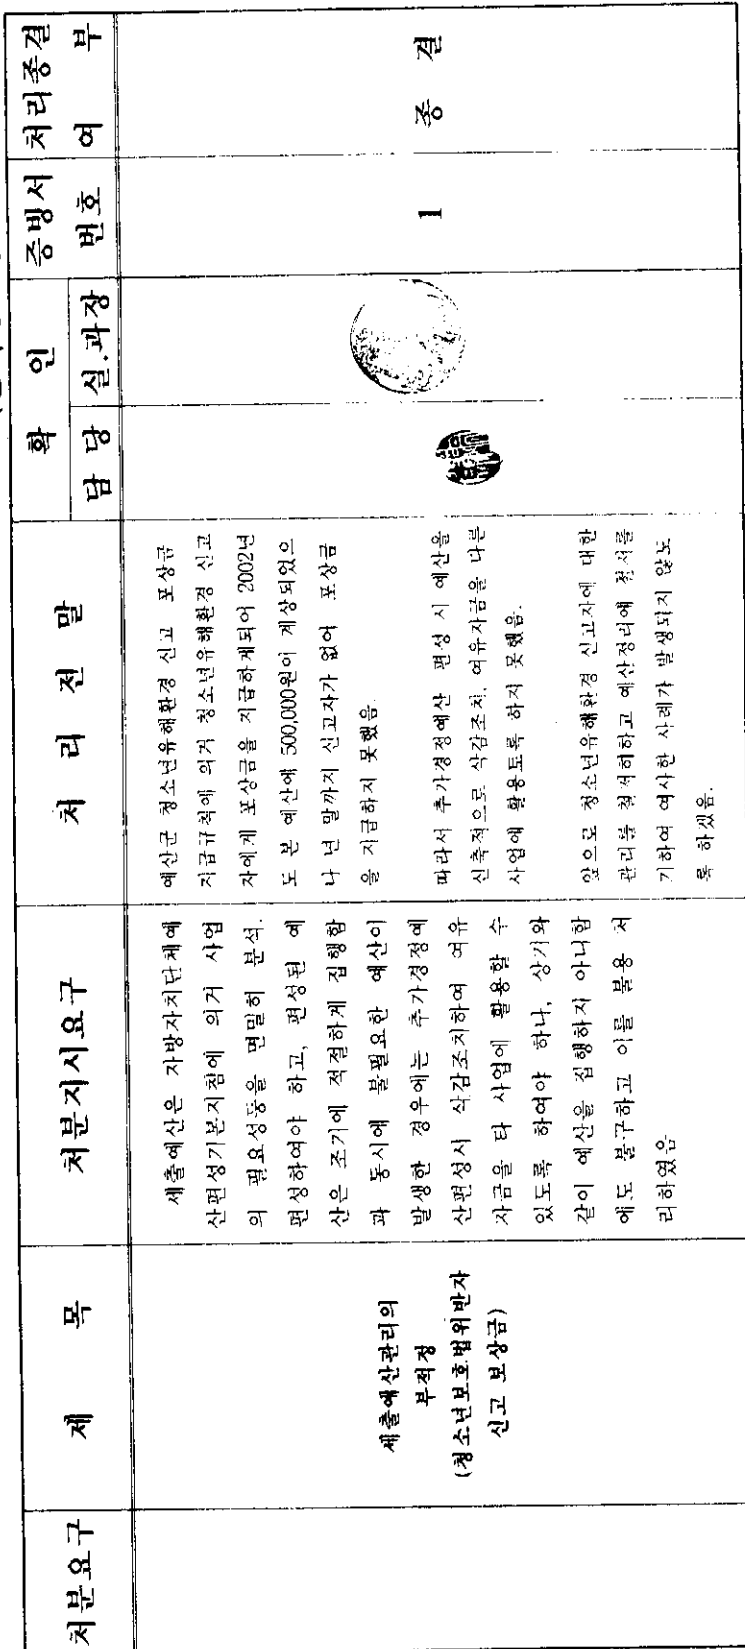 처분요구
제 목
처분지시요구
처 리 전 말
확 인
담 당
실.과장
증빙서
번호
처리종결
여 부
세출예산관리의
부적정
(청소년보호법위반자
신고 보상금)
세출예산은 지방자치단체예
산편성기본지침에 의거 사업
의 필요성등을 면밀히 분석.
편성하여야 하고, 편성된 예
산은 조기에 적절하게 집행함
과 동시에 불필요한 예산이
발생한 경우에는 추가경정예
산편성시 삭감조치하여 여유
자금을 타 사업에 활용할 수
있도록 하여야 하나, 상기와
같이 예산을 집행하지 아니함
에도 불구하고 이를 불용 처
리하였음
예산군 청소년유해환경 신고 포상금
지급규칙에 의거 청소년유해환경 신고
자에게 포상금을 지급하게되어 2002년
도 본 예산에 500,000원이 계상되었으
나 년 말까지 신고자가 없어 포상금
을 지급하지 못했음.
따라서 추가경정예산 편성 시 예산을
신축적으로 삭감조치, 여유자금을 다른
사업에 활용토록 하지 못했음.
앞으로 청소년유해환경 신고자에 대한
관리를 철저히하고 예산정리에 철저를
기하여 여사한 사례가 발생되지 않도
록 하겠음.
1
종 결